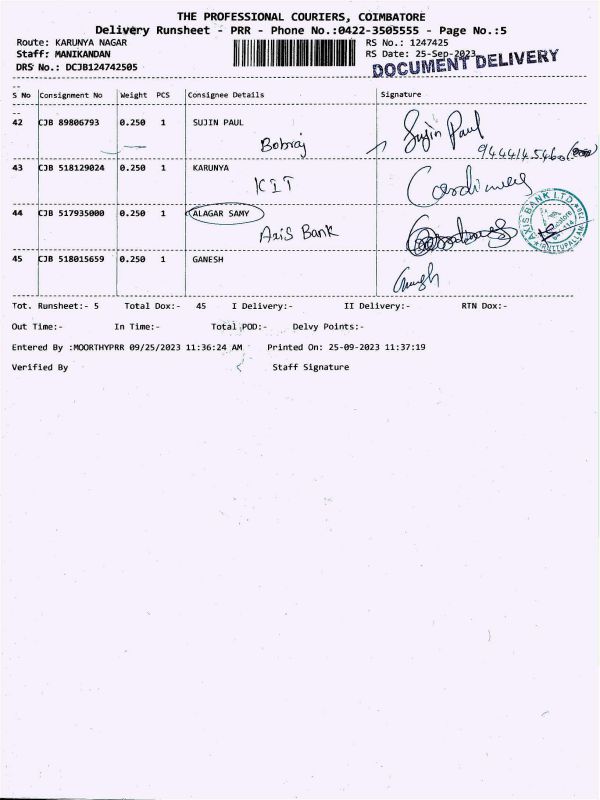 THE PROFESSIONAL COURIERS, COIMBATORE
Delivery Runsheet - PRR - Phone No.:0422-3505555 - Page No.:5
Route: KARUNYA NAGAR RS No.: 1247425
Staff: MANIKANDAN RS Date: 25-Sep-2023
DRS No.: DCJB124742505 DOCUMENT DELIVERY
S No Consignment No Weight PCS Consignee Details Signature
42 CJB 89806793 0.250 1 SUJIN PAUL Sujin Paul
Bobraj
43 CJB 518129024 0.250 1 KARUNYA
KIT
44 CJB 517935000 0.250 1 ALAGAR SAMY
Axis Bank
AXIS BANK LTD.
45 CJB 518015659 0.250 1 GANESH
Tot. Runsheet:- 5 Total Dox:- 45 I Delivery:- II Delivery:- RTN Dox:-
Out Time:- In Time:- Total POD:- Delvy Points:-
Entered By :MOORTHYPRR 09/25/2023 11:36:24 AM Printed On: 25-09-2023 11:37:19
Verified By Staff Signature